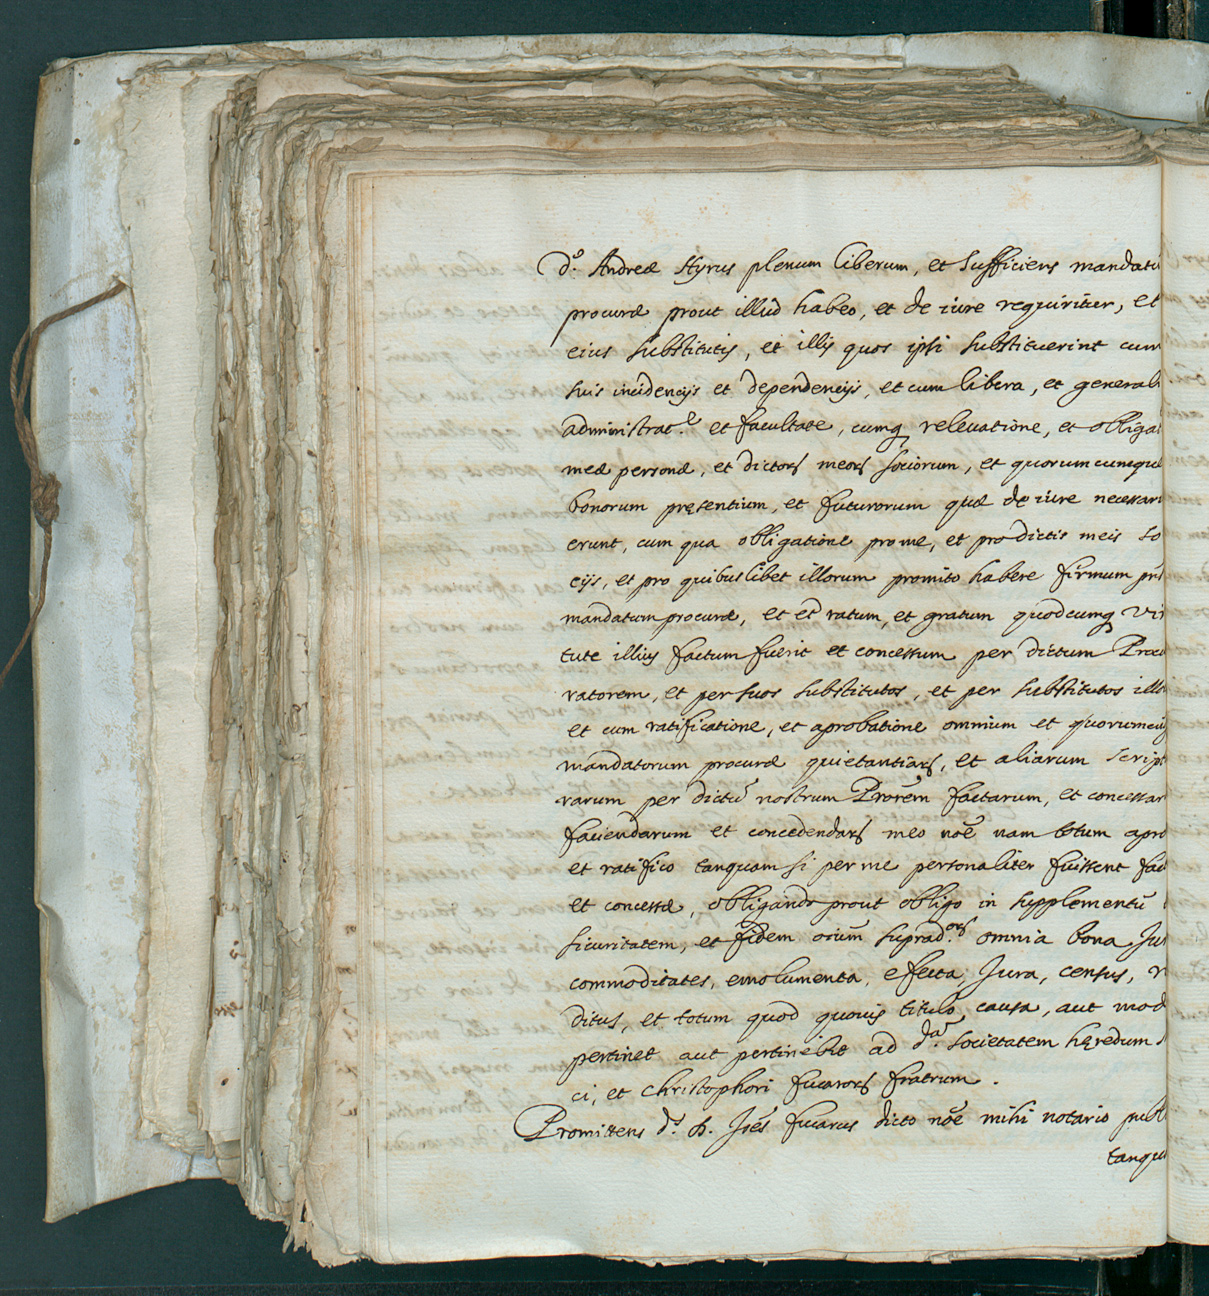 d.º Andreæ Hyrus plenum liberum, et sufficiens mandatu
procuræ prout illud habeo, et de iure requiritur, et
eius substitutis, et illis quos ipsi substituerint cum
suis incidencijs et dependencijs, et cum libera, et general
administrat.e et facultate, cumq relevatione, et obliga
meæ personæ, et dictors meors sociorum, et quorumcumque
bonorum pręsentium, et futurorum quæ de iure necessari
erunt, cum qua obligatione pro me, et pro dictis meis so
cijs, et pro quibuslibet illorum promito habere firmum pns
mandatum procuræ, et et ratum, et gratum quodcumq vir
tute illius factum fuerit et concessum per dictum Procu
ratorem, et per suos substitutos, et per substitutos illo
et cum ratificatione, et aprobatione omnium et quorumcu
mandatorum procuræ quietantiars, et aliarum script
rarum per dictū nostrum Prorem factarum, et concessar
faciendarum et concedendars meo nōe nam totum apro
et ratifico tanquam si per me personaliter fuissent fac
et concessæ, obligando prout obligo in supplementū
sicuritatem, et fidem oium suprad.ors omnia bona Ju
commoditates, emolumenta, effecta, Jura, census, r
ditus, et totum quod quovis titulo, causa, aut mod
pertinet aut pertinebit ad d.ar societatem hęredum
ci, et Christophori fucarors fratrum.
Promittens d.s h. Jōes fucarus dicto nōe mihi notario publ
tanqu